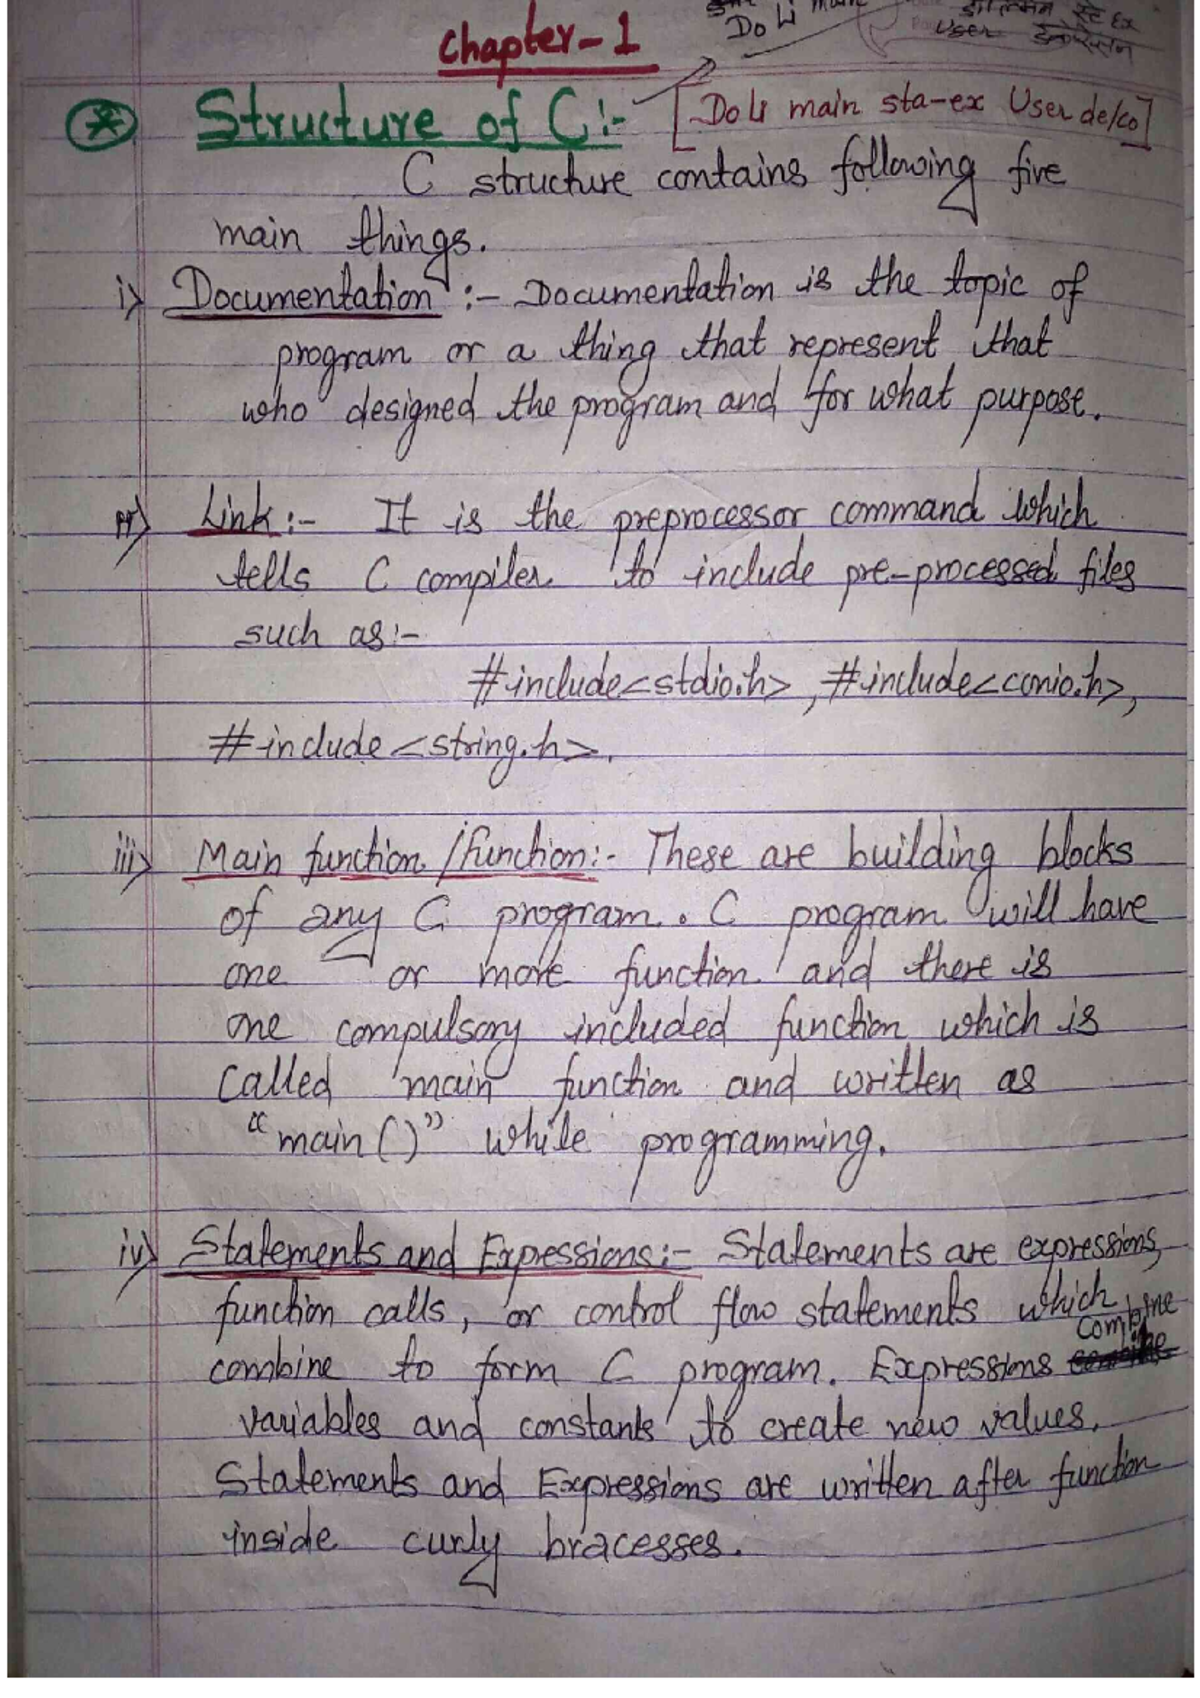 Do Li main
User
Ex
Chapter-1
Structure of C:- [Do Li main sta-ex User de/co]
C structure contains following five
main things.
i) Documentation :- Documentation is the topic of
program or a thing that represent that
who designed the program and for what purpose.
ii) Link:- It is the preprocessor command which
tells C compiler to include pre-processed files
such as:-
#include<stdio.h>, #include<conio.h>,
#include<string.h>.
iii) Main function/function:- These are building blocks
of any C program. C program will have
one or more function and there is
one compulsory included function which is
called main function and written as
"main()" while programming.
iv) Statements and Expressions:- Statements are expressions,
function calls, or control flow statements which
combine to form C program. Expressions combine
variables and constants to create new values.
Statements and Expressions are written after function
inside curly bracesses.